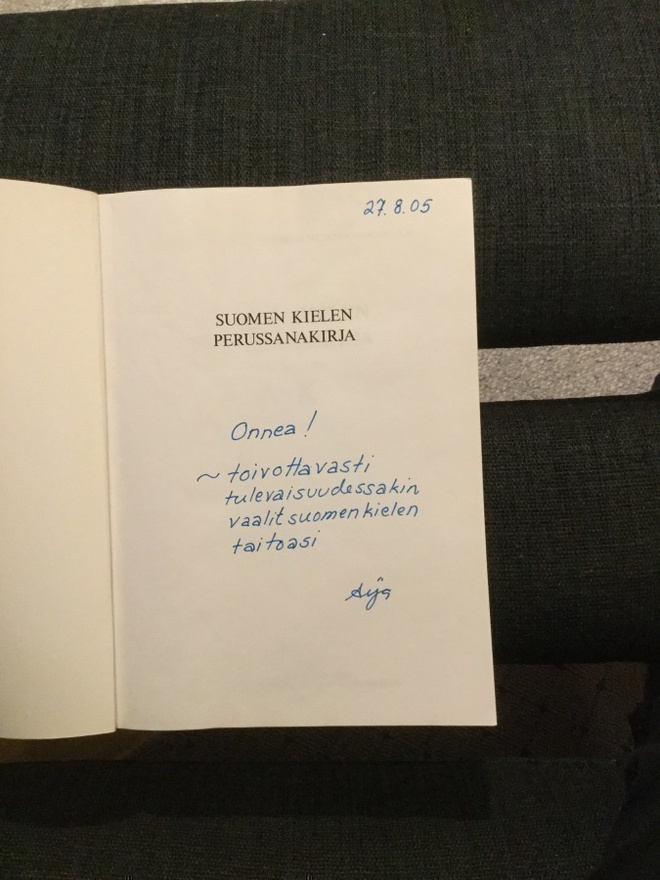 27.8.05
SUOMEN KIELEN
PERUSSANAKIRJA
Onnea!
~ toivottavasti
tulevaisuudessakin
vaalit suomen kielen
taitoasi
Aija